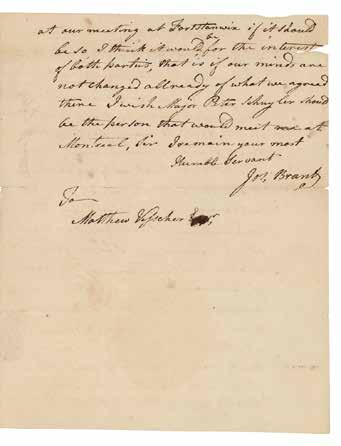 at our meeting at Fortstanwix if it should
be so I think it would be for the interest
of both parties, that is if our minds are
not changed allready of what we agreed
there I wish Major Peter Schuyler should
be the person that would meet me at
Montreal, Sir I remain your most
Humble Servant
Jos. Brant
To
Matthew Visscher Esqr.